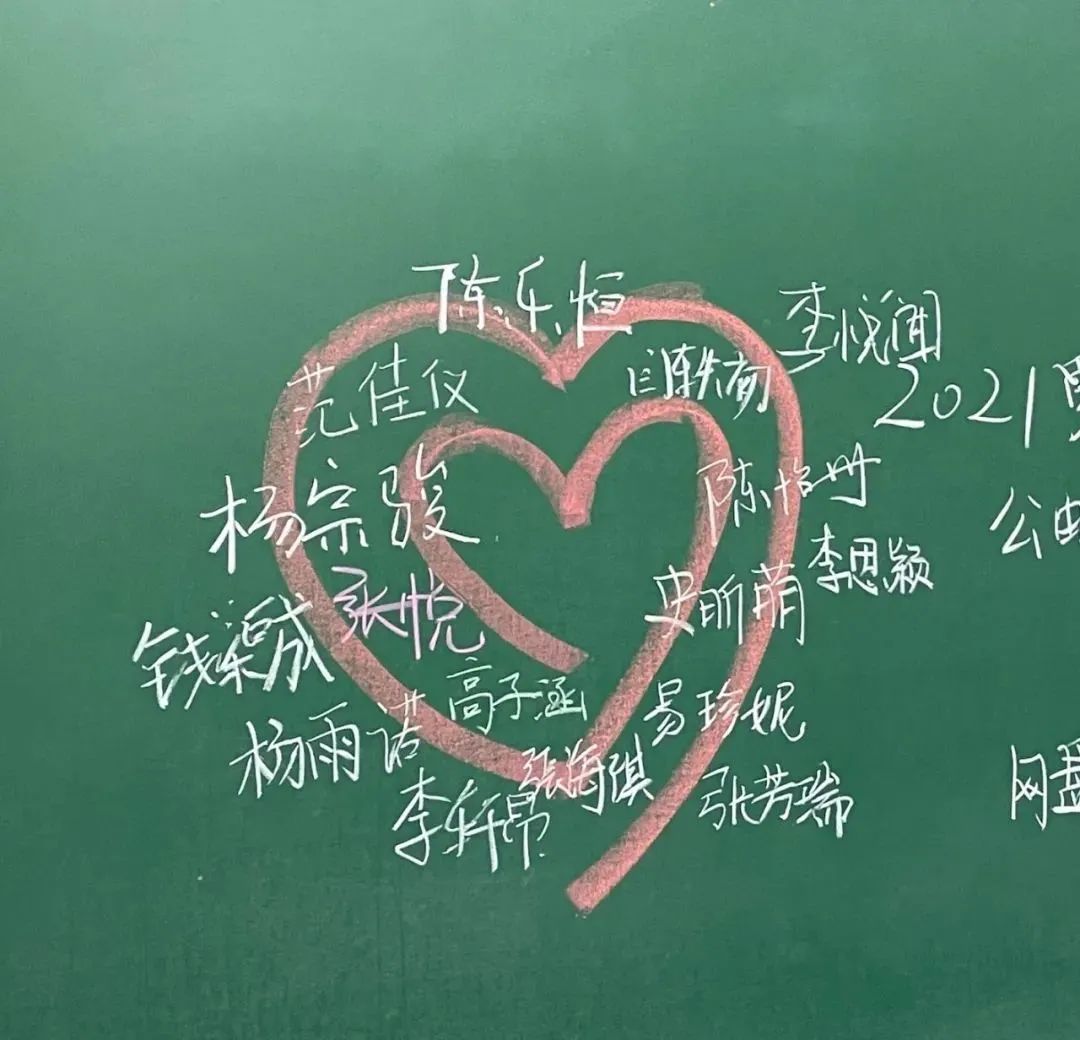 陈乐恒
李悦闻
范佳仪
2021
杨宗骏
陈怡丹
公
李思颖
史昕萌
张悦
钱梁成
高子涵
易珍妮
杨雨诺
张海琪
张芳瑞
网盘
李轩昂